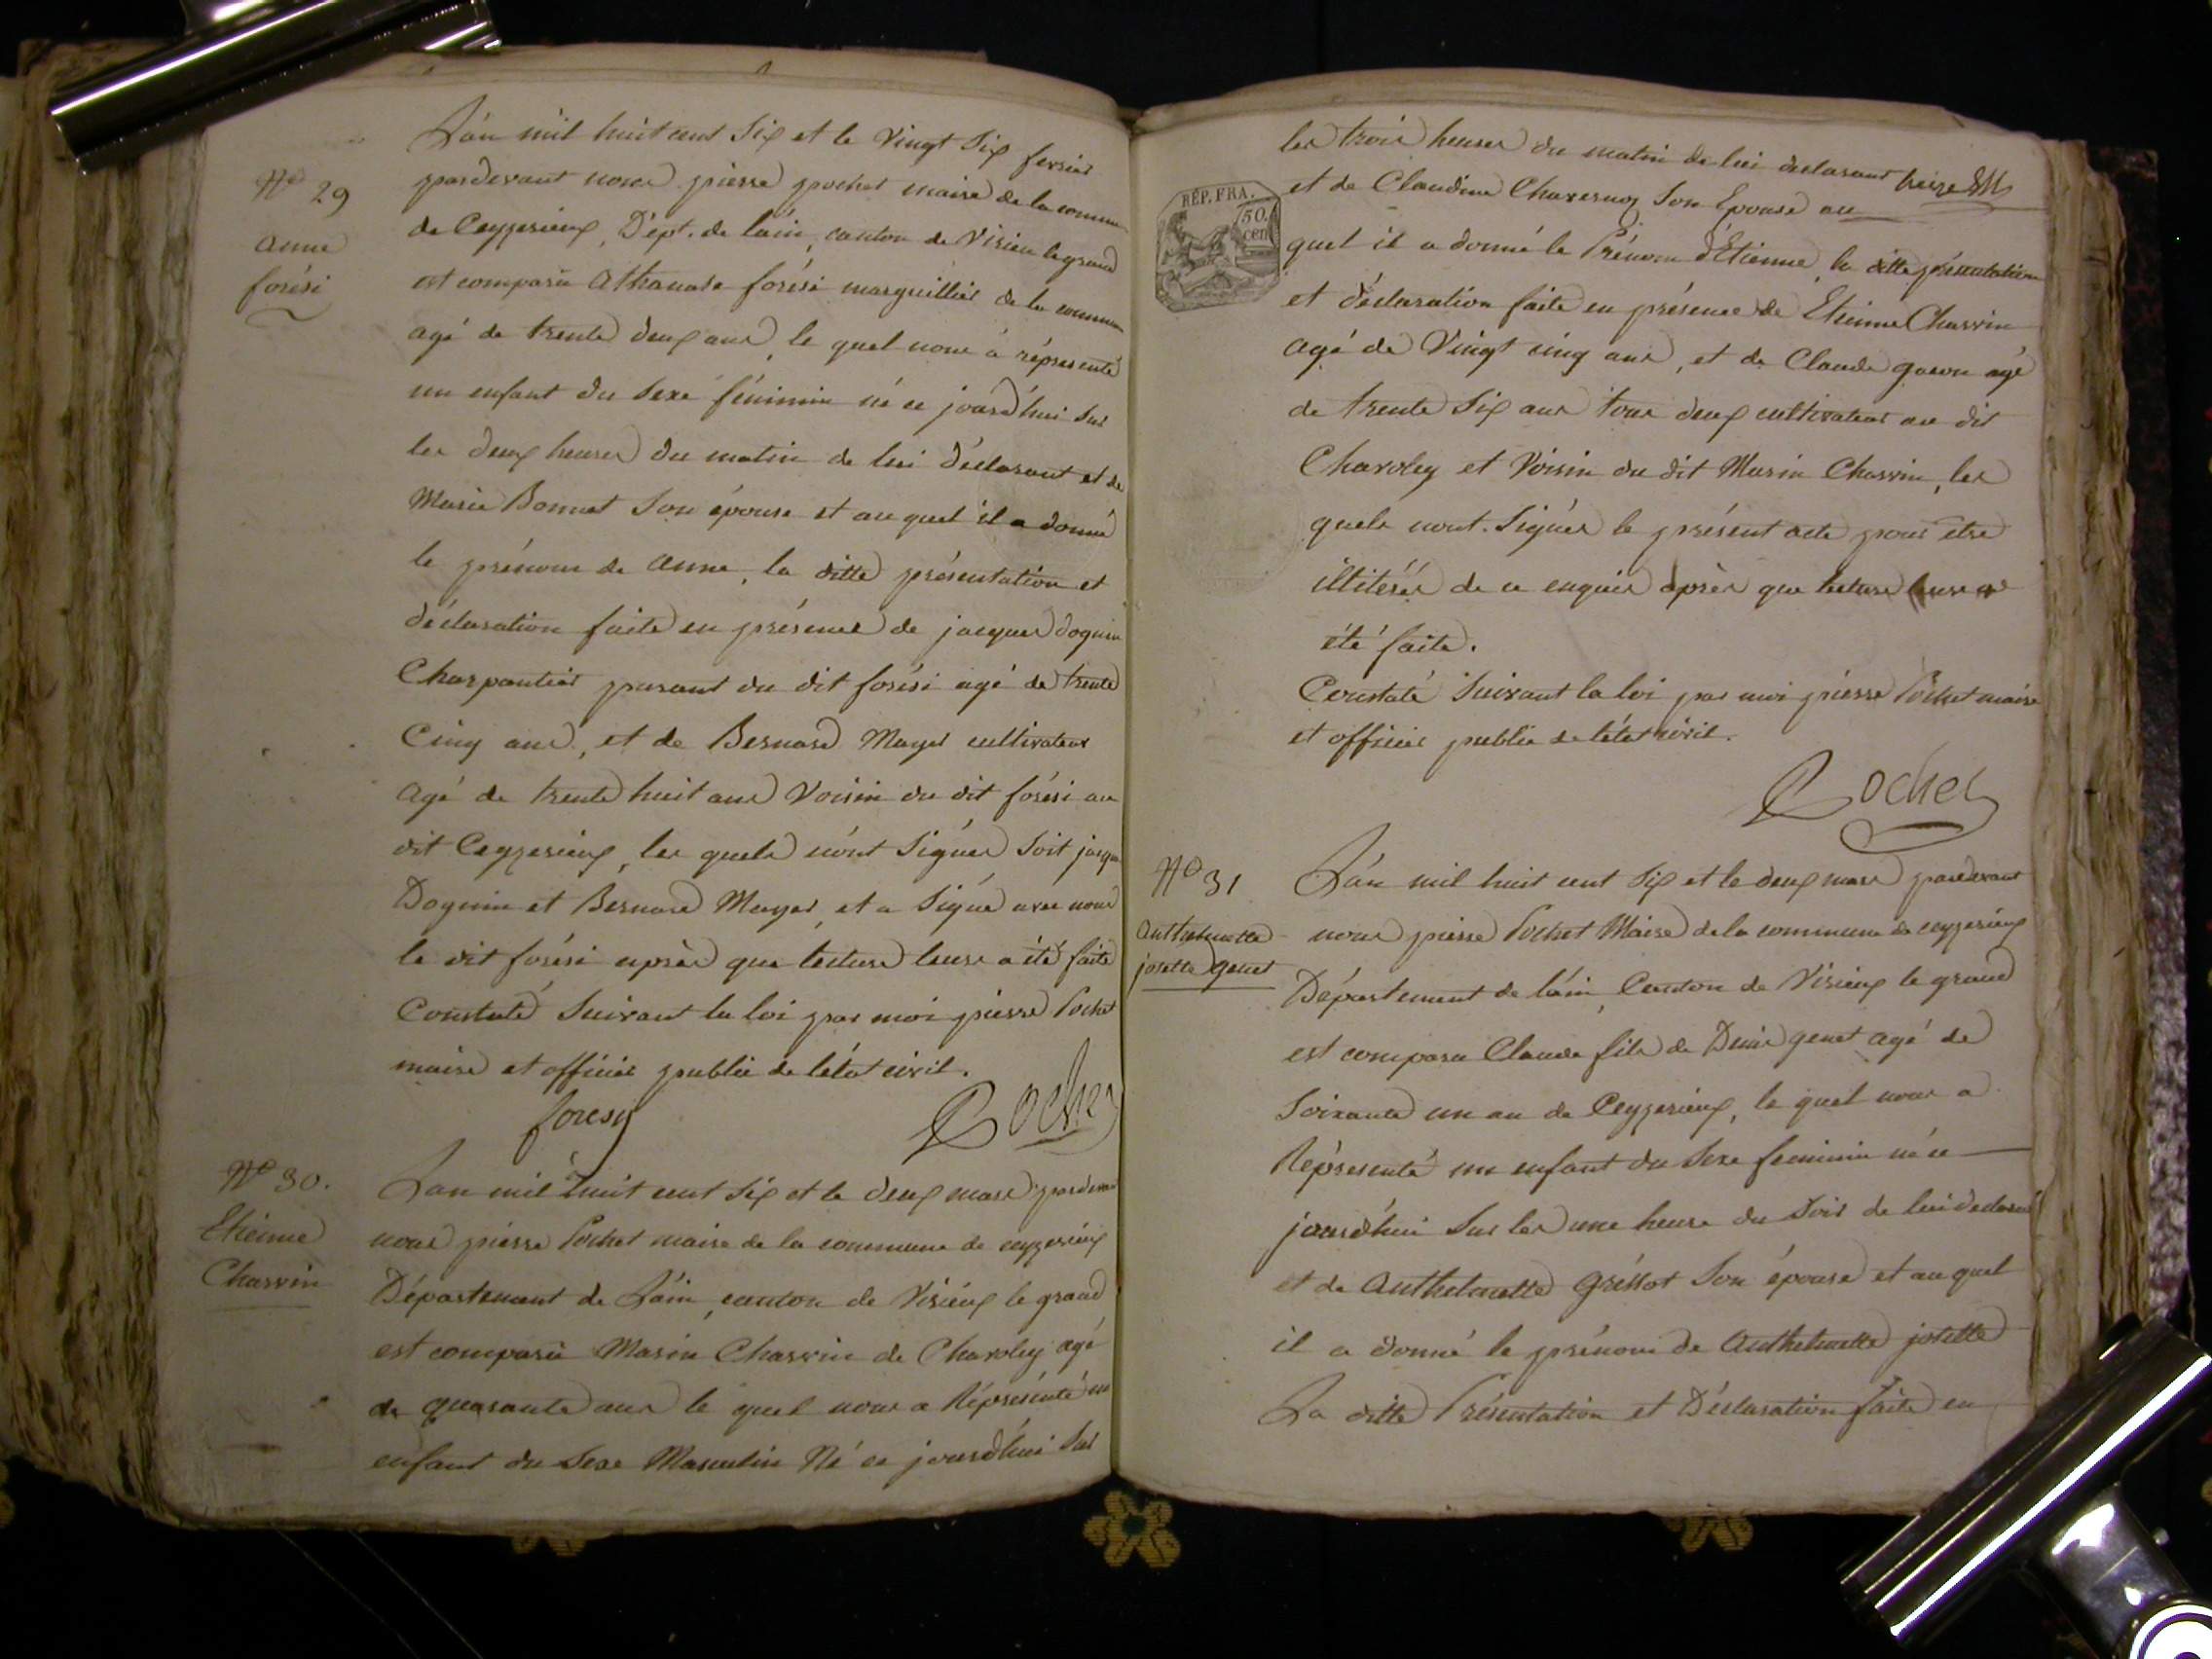 N° 29
anne
forési
L'an mil huit cent Six et le Vingt Six fevrier
pardevant nous pierre pochet maire de la commune
de Ceyzerieux, Dépt. de l'ain, canton de Virieu legrand
est comparu Athanase forési marguillier de la commune
agé de trente deux ans, le quel nous à réprésenté
un enfant du Sexe féminin né ce jourd'hui sur
les deux heures du matin de lui déclarant et de
Marie Bonnet Son épouse et au quel il a donné
le prénom de anne, la ditte présentation et
déclaration faite en présence de jacques Doguin
Charpentier parant du dit forési agé de trente
Cinq ans, et de Bernard Mayet cultivateur
agé de trente huit ans Voisin du dit forési au
dit Ceyzerieux, les quels n'ont Signés Soit jacques
Doguin et Bernard Mayet, et a Signé avec nous
le dit forési après que lecture leurs a été faite
Constaté Suivant la loi par moi pierre Pochet
maire et officier public de l'état civil.
foresy Pochet
N° 30.
Etienne
Charvin
L'an mil huit cent Six et le deux mars pardevant
nous pierre Pochet maire de la commune de ceyzerieux
Département de L'ain, canton de Virieux le grand
est comparu Marin Charvin de Charoley agé
de quarante ans le quel nous a Réprésenté un
enfant du Sexe Masculin Né ce jourd'hui Sur
RÉP. FRA.
50.
cen
les trois heures du matin de lui déclarant treize
et de Claudine Chavernoz Son Epouse au
quel il a donné le Prénom d'Etienne, la ditte présentation
et déclaration faite en présence de Etienne Charvin
agé de Vingt cinq ans, et de Claude goron agé
de trente Six ans tous deux cultivateur au dit
Charoley et Voisin du dit Marin Charvin, les
quels n'ont Signés le présent acte pour etre
illiterés de ce enquis après que lecture leurs a
été faite.
Constaté Suivant la loi par moi pierre Pochet maire
et officier public de l'état civil.
Pochet
N° 31
anthelmette
josette genet
L'an mil huit cent Six et le deux mars pardevant
nous pierre Pochet Maire de la commune de ceyzerieux
Département de l'ain, Canton de Virieux le grand
est comparu Claude fils de Denis genet agé de
Soixante un an de Ceyzerieux, le quel nous a
Réprésenté un enfant du Sexe feminin né ce
jourd'hui Sur les une heure du Soir de lui déclarant
et de Anthelmette gréssot Son épouse et au quel
il a donné le prénom de Anthelmette josette
La ditte Présentation et Déclaration faite en